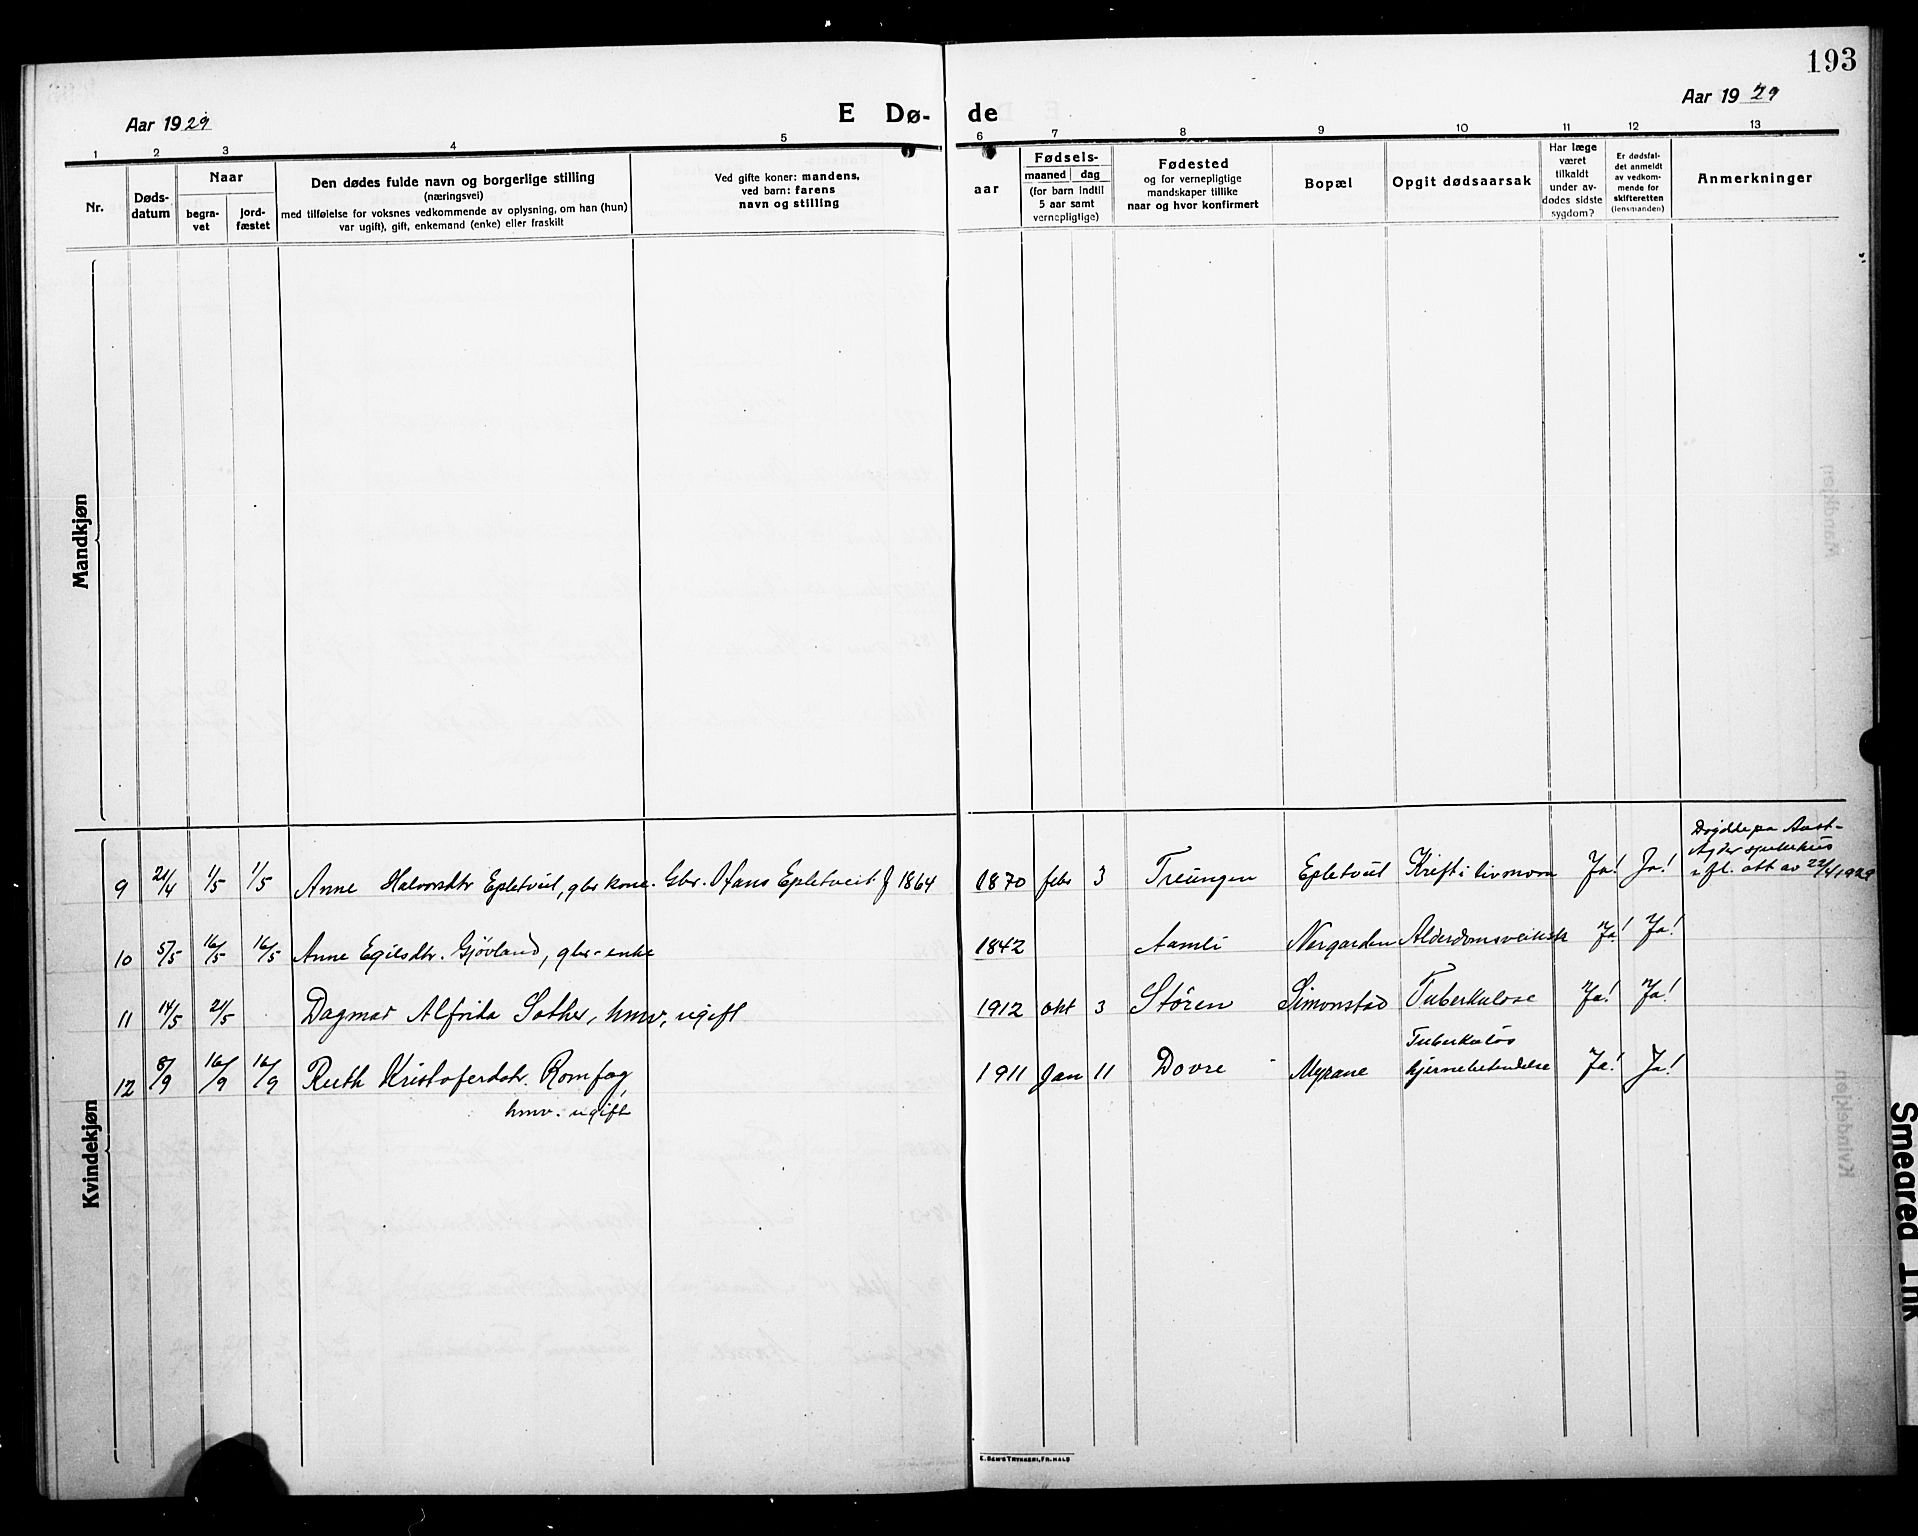 193
Aar 1929
E Dø-
de
Aar 1929
1 2 3 4 5 6 7 8 9 10 11 12 13
Nr.
Døds-
datum
Naar
begra-
vet
jord-
fæstet
Den dødes fulde navn og borgerlige stilling
(næringsvei)
med tilføielse for voksnes vedkommende av oplysning, om han (hun)
var ugift), gift, enkemand (enke) eller fraskilt
Ved gifte koner: mandens,
ved barn: farens
navn og stilling
aar
Fødsels-
maaned dag
(for barn indtil
5 aar samt
vernepligtige)
Fødested
og for vernepligtige
mandskaper tillike
naar og hvor konfirmert
Bopæl
Opgit dødsaarsak
Har læge
været
tilkaldt
under av-
dødes sidste
sygdom?
Er dødsfal-
det anmeldt
av vedkom-
mende for
skifteretten
(lensmanden)
Anmerkninger
Mandkjøn
Kvindekjøn
9 21/4 1/5 1/5 Anne Halvorsdtr Epletveit, gbr kone. Gbr. Hans Epletveit f 1864 1870 febr 3 Treungen Epletveit Kreft i livmora Ja! Ja!
Døydde pa Aust-
Agder sjukehus
i fl. att av 22/4 1929
10 5/5 16/5 16/5 Anne Egilsdtr. Gjövland, gbr-enke 1842 Aamli Nergarden Alderdomsveiksk Ja! Ja!
11 14/5 21/5 Dagmar Alfrida Sather, hmv, ugift 1912 okt 3 Stören Simonstad Tuberkulose Ja! Ja!
12 8/9 16/9 16/9 Ruth Kristofersdtr. Romfog, 1911 Jan 11 Dovre Myrane Tuberkuløs
hjernebetendelse Ja! Ja!
hmv. ugift
E. SEM'S TRYKKERI, FR.HALD
Smeared Ink